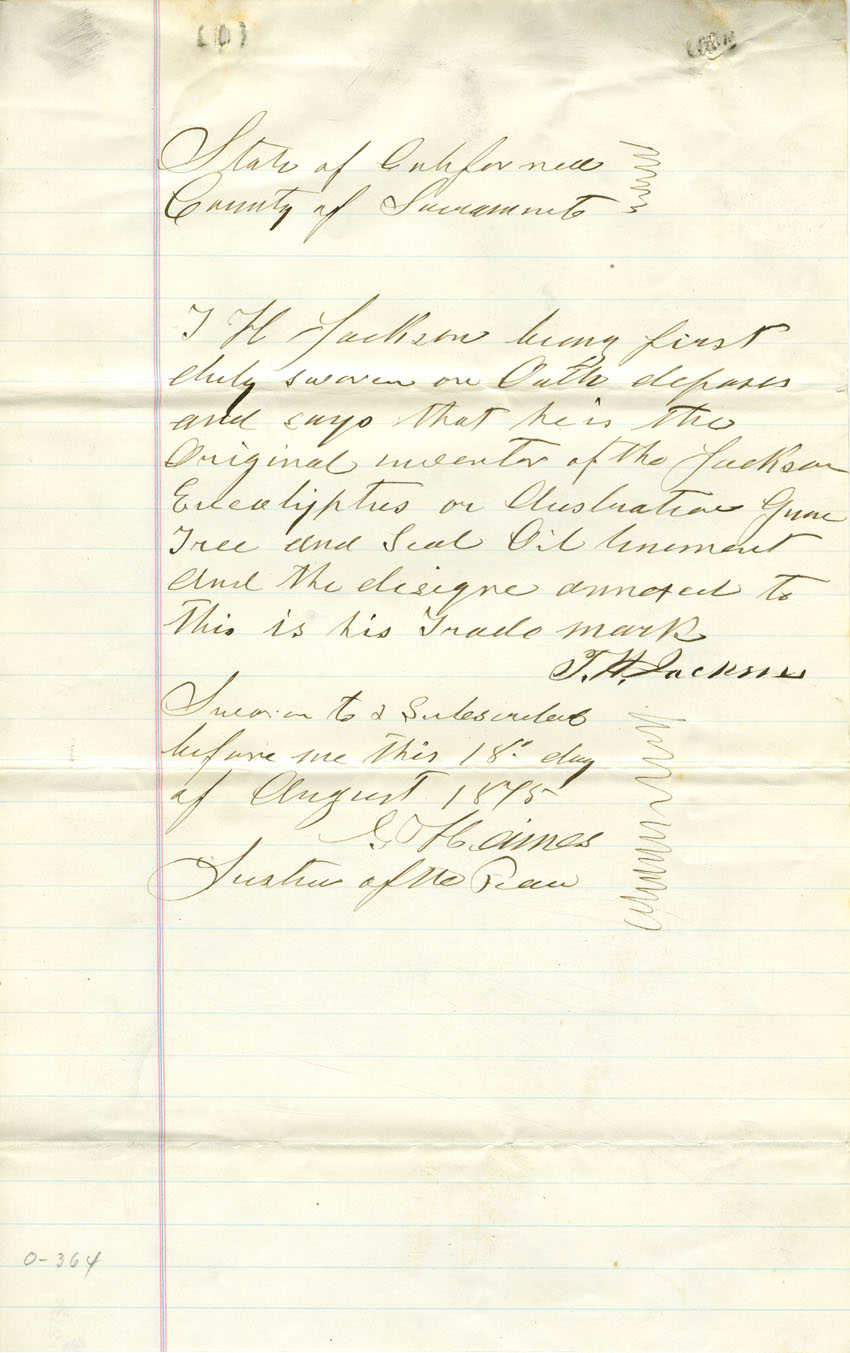 State of California
County of Sacramento
T H Jackson being first
duly sworn on Oath deposes
and says that he is the
Original inventor of the Jackson
Eucalyptus or Australian Gum
Tree and Seal Oil Linement
And the disigne annexed to
this is his Trade mark
T. H. Jackson
Sworn to & Subscribed
before me this 18" day
of August 1875
Haines
Justice of the Peace
0-364